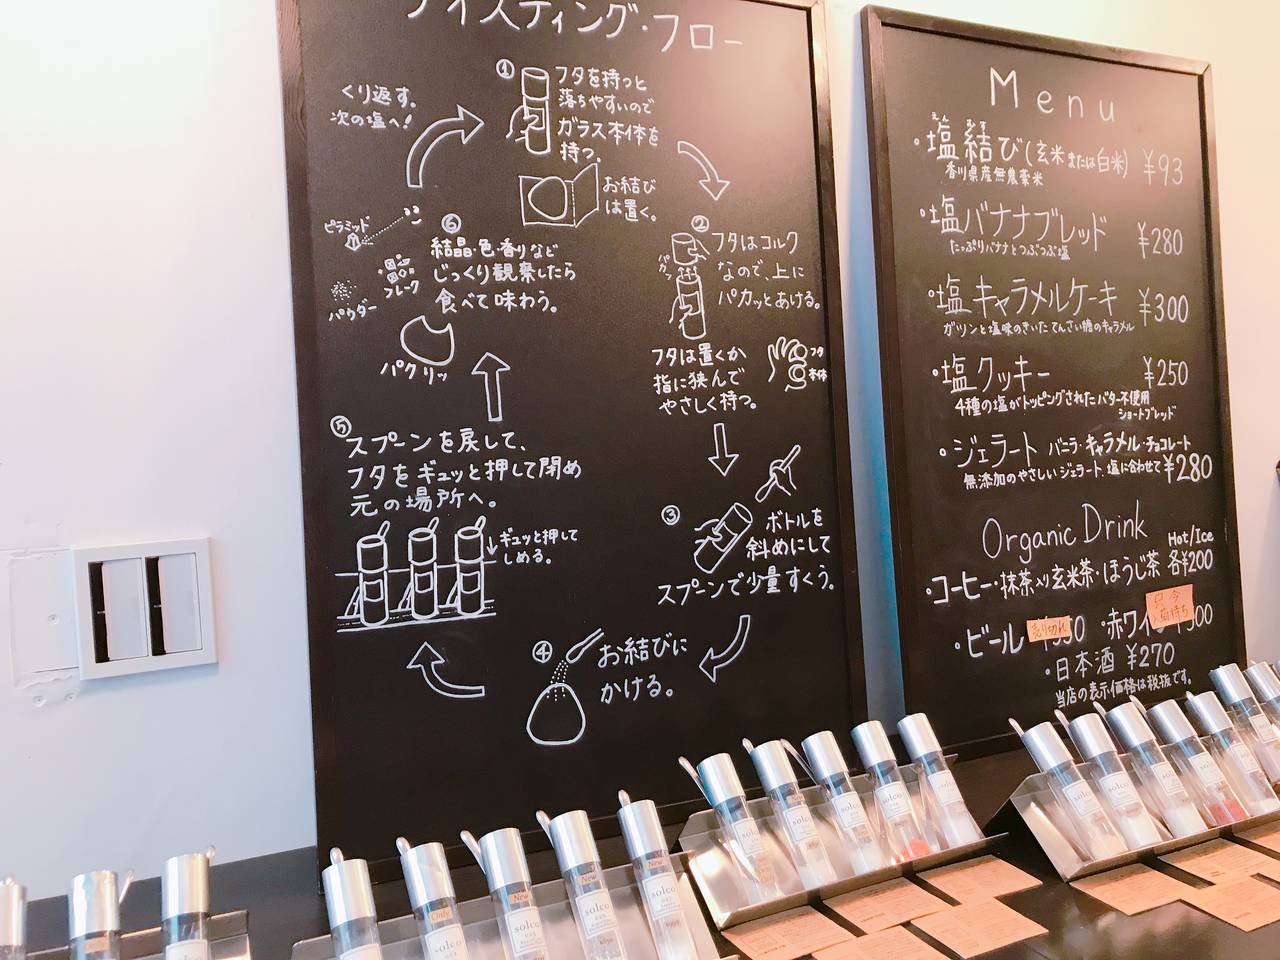 テイスティング・フロー
① フタを持つと
落ちやすいので
ガラス本体を
持つ。
お結び
は置く。
② フタはコルク
なので、上に
パカッとあける。
パカッ
フタは置くか
指に挟んで
やさしく持つ。
フタ
本体
③ ボトルを
斜めにして
スプーンで少量すくう。
④ お結びに
かける。
⑤ スプーンを戻して、
フタをギュッと押して閉め
元の場所へ。
ギュッと押して
しめる。
⑥ 結晶・色・香りなど
じっくり観察したら
食べて味わう。
ピラミッド
フレーク
パウダー
パクリッ
くり返す。
次の塩へ!
Menu
・塩結び(玄米または白米) ¥93
えん むすび
香川県産無農薬米
・塩バナナブレッド ¥280
たっぷりバナナとつぶつぶ塩
・塩キャラメルケーキ ¥300
ガツンと塩味のきいた てんさい糖のキャラメル
・塩クッキー ¥250
4種の塩がトッピングされたバター不使用
ショートブレッド
・ジェラート バニラ・キャラメル・チョコレート
無添加のやさしいジェラート、塩に合わせて ¥280
Organic Drink
Hot/Ice
・コーヒー・抹茶入り玄米茶・ほうじ茶 各¥200
・ビール 売り切れ
・赤ワイン 只今入荷待ち
・日本酒 ¥270
当店の表示価格は税抜です。
Only
New
New
New
solco
solco
solco
solco
solco